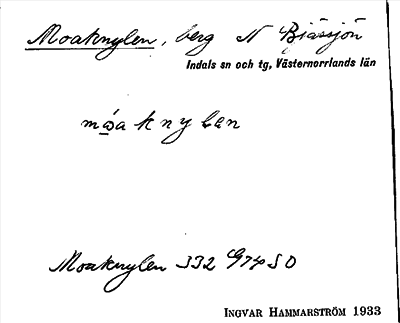 Moaknylen, berg N Bjässjön
Indals sn och tg, Västernorrlands län
Moaknylen 332 G74 SO
INGVAR HAMMARSTRÖM 1933